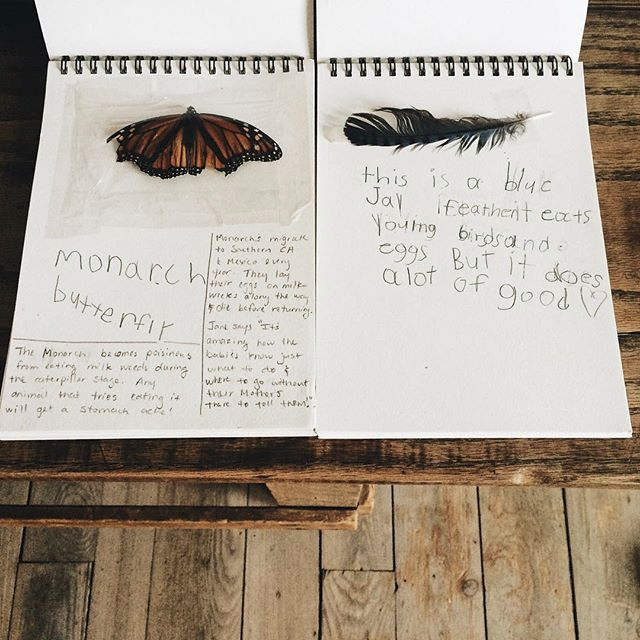 monarch
butterfir
Monarchs migrate
to Southern CA
& Mexico every
year. They lay
their eggs on milk-
weeds along the way
& die before returning.
Jane says "It's
amazing how the
babies know just
what to do &
where to go without
their Mothers
there to tell them."
The Monarch becomes poisinous
from eating milk weeds during
the caterpillar stage. Any
animal that tries eating it
will get a stomach ache!
this is a blue
Jay feather it eats
young birds and
eggs But it does
alot of good